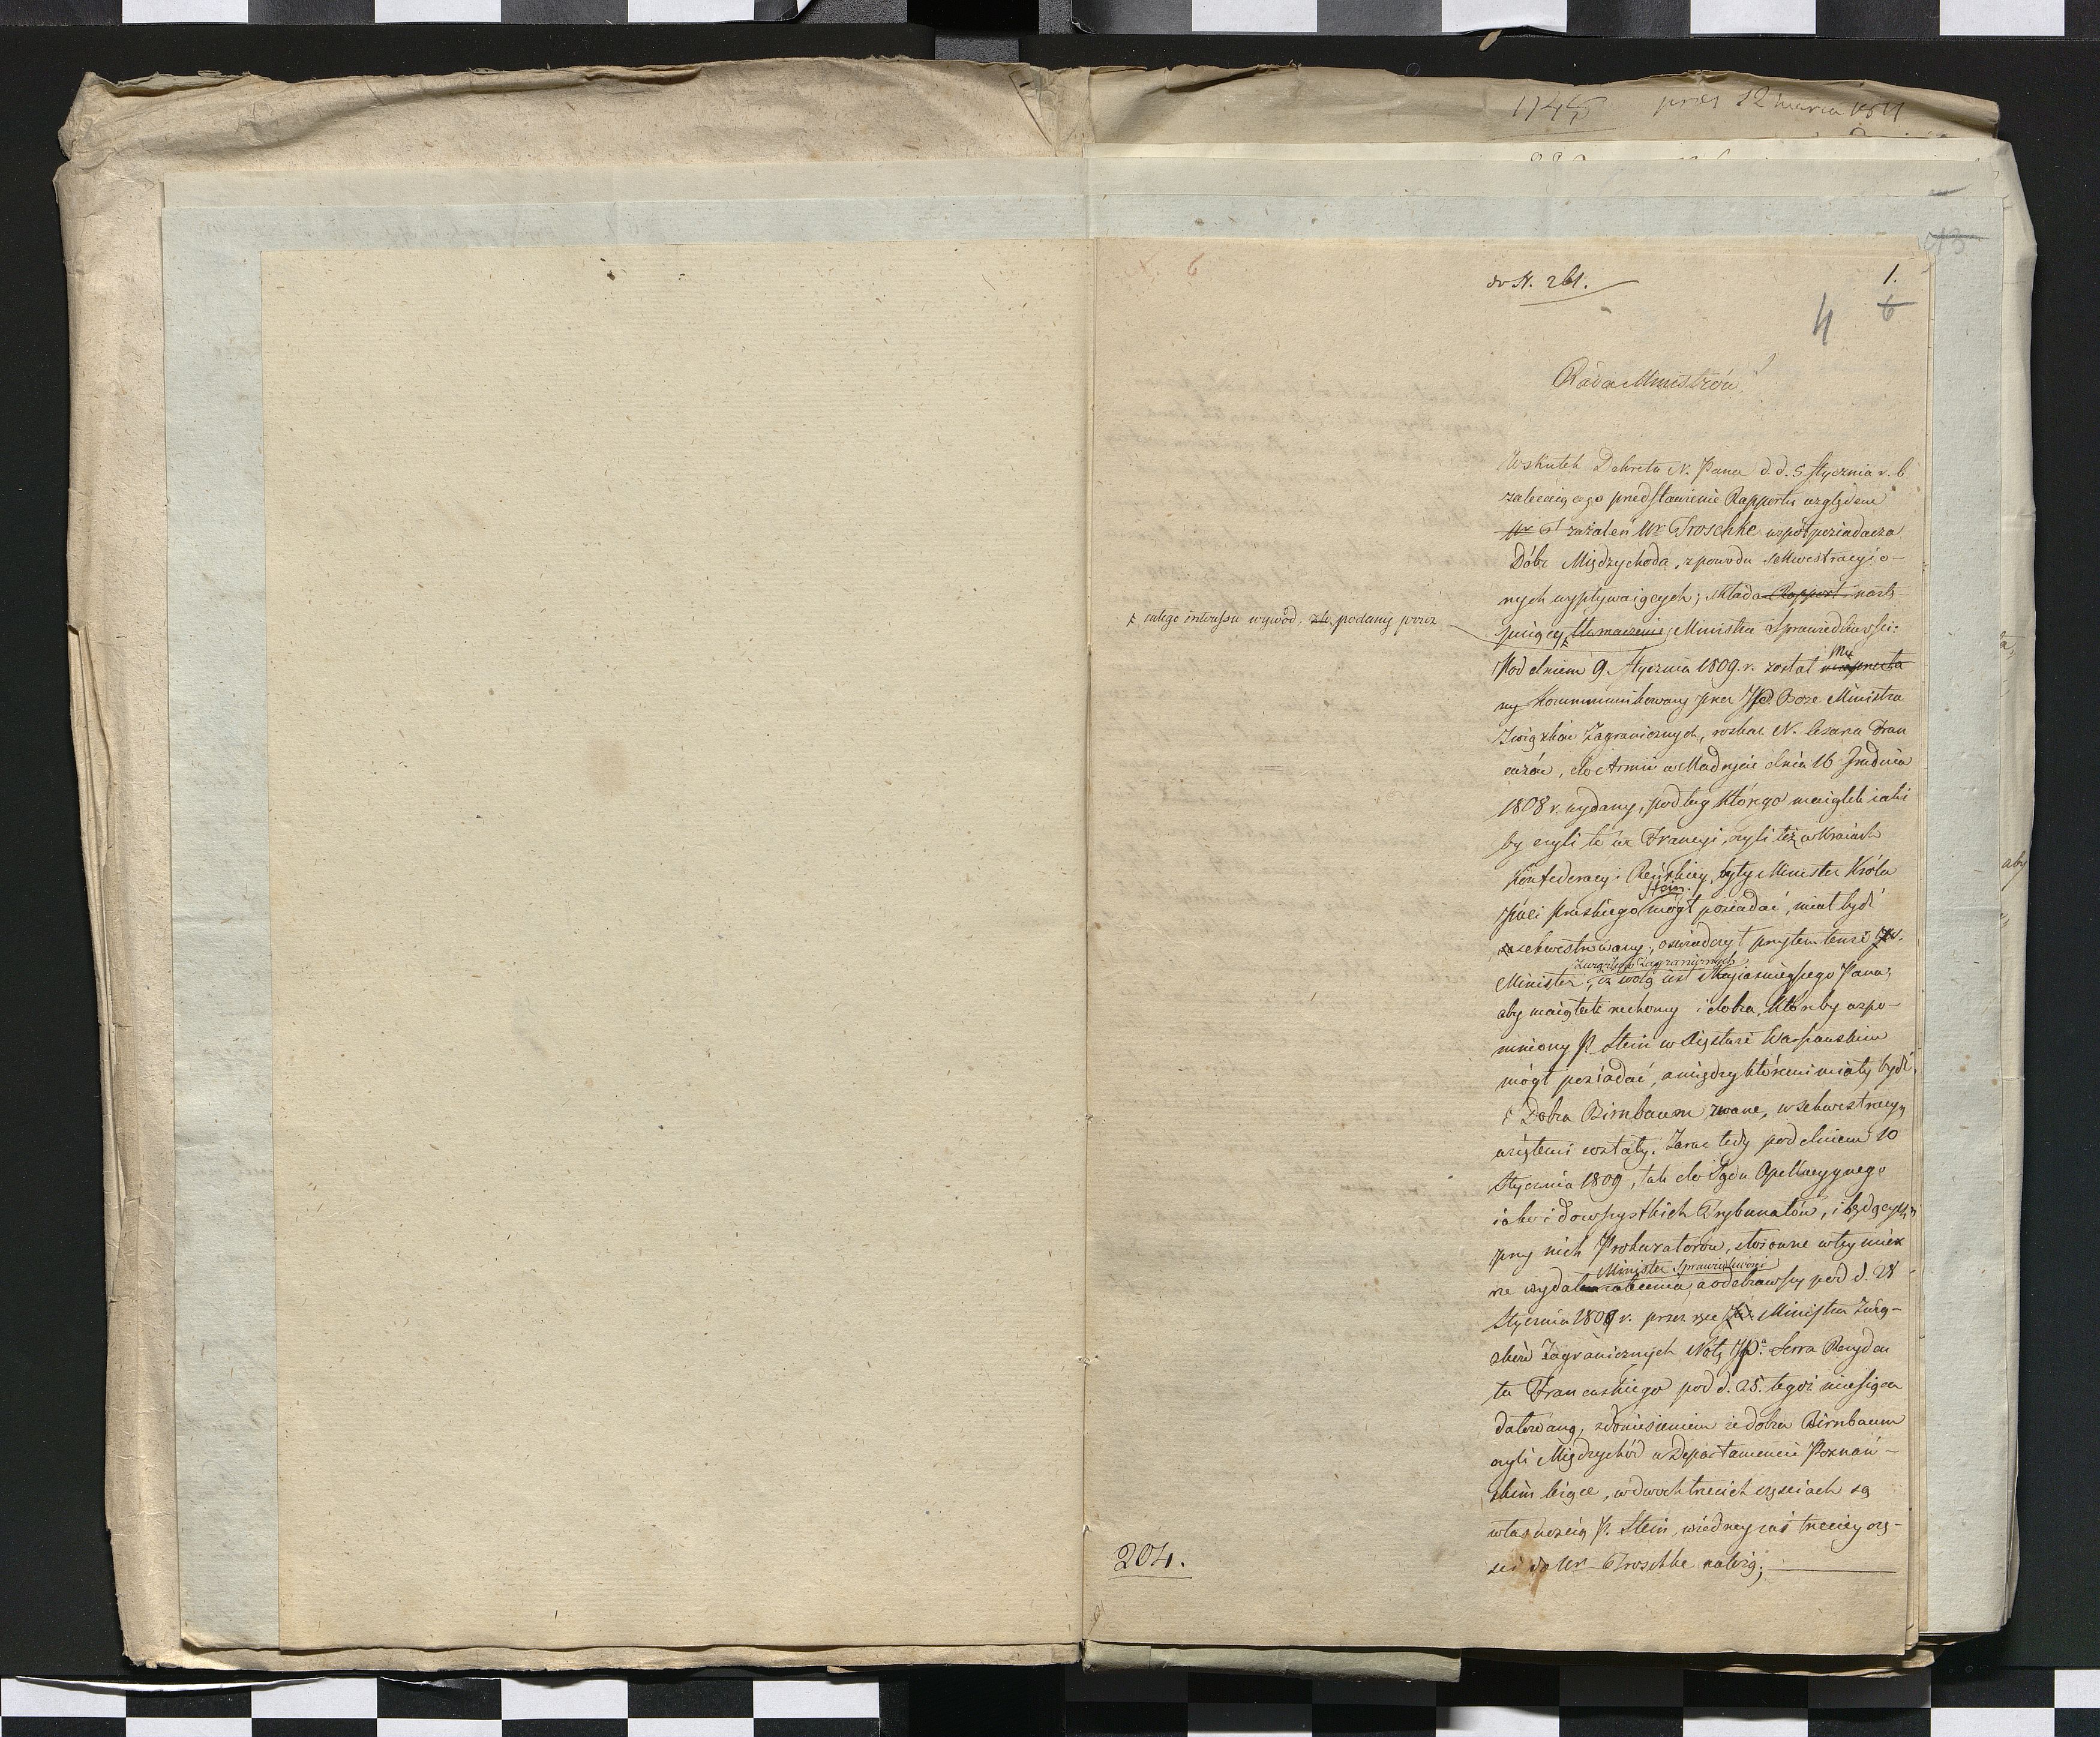 1745 pres 12 marca 1811
N. 6
do N. 261.
1.
6
4
13
Rada Ministrów!
Wskutek Dekretu N. Pana d.d. 5 stycznia r. b
zalecaiącego przedstawienie Rapportu względem
zażaleń Ur Troschke współposiadacza
Dóbr Międzychoda, z powodu sekwestracyi o-
nych wypływaiących; składa Rapport nastę-
puiący tłomaczenie Ministra Sprawiedliwości:
całego interessu wywód, podany przez
Pod dniem 9. Stycznia 1809. r. został Mu
ny kommunikowany przez JPa Boze Ministra
Związków Zagranicznych, rozkaz N. Cesarza Fran
cuzów, do Armii w Madrycie dnia 16 Grudnia
1808 r. wydany, podług którego maiątek iaki
by czyli to we Francyi, czyli też w Kraiach
Konfederacyi Reńskiey, były Minister Króla
Stein.
Pruskiego mógł posiadać, miał bydź
sekwestrowany; oświadczył przytem tenże JW.
Związków Zagranicznych
Minister, iż wolą iest Nayiaśnieyszego Pana,
aby maiątek ruchomy i dobra, któreby wspo-
mniony P. Stein w Xięstwie Warszawskim
mógł posiadać, a między któremi miały bydź
i Dobra Birnbaum zwane, w sekwestracyą
wziętemi zostały. Zaraz tedy pod dniem 10
Stycznia 1809, tak do Sądu Apellacyynego
iako i do wszystkich Trybunałów, i będących
przy nich Prokuratorów, stosowne w tey mierz
Minister Sprawiedliwości
ze wydał zalecenia, a odebrawszy pod d. 28
Stycznia 1809 r. przez ręce JW. Ministra Zwią-
zków Zagranicznych Notę JPa Serra Rezyden
ta Francuskiego pod d. 25. tegoż miesiąca
datowaną, z doniesieniem że dobra Birnbaum
czyli Międzychód w Departamencie Poznań-
skim leżące, w dwoch trzecich częściach są
własnością P. Stein, w iedney zaś trzeciey czę-
ści do Ur Troschke należą;
204.
aby